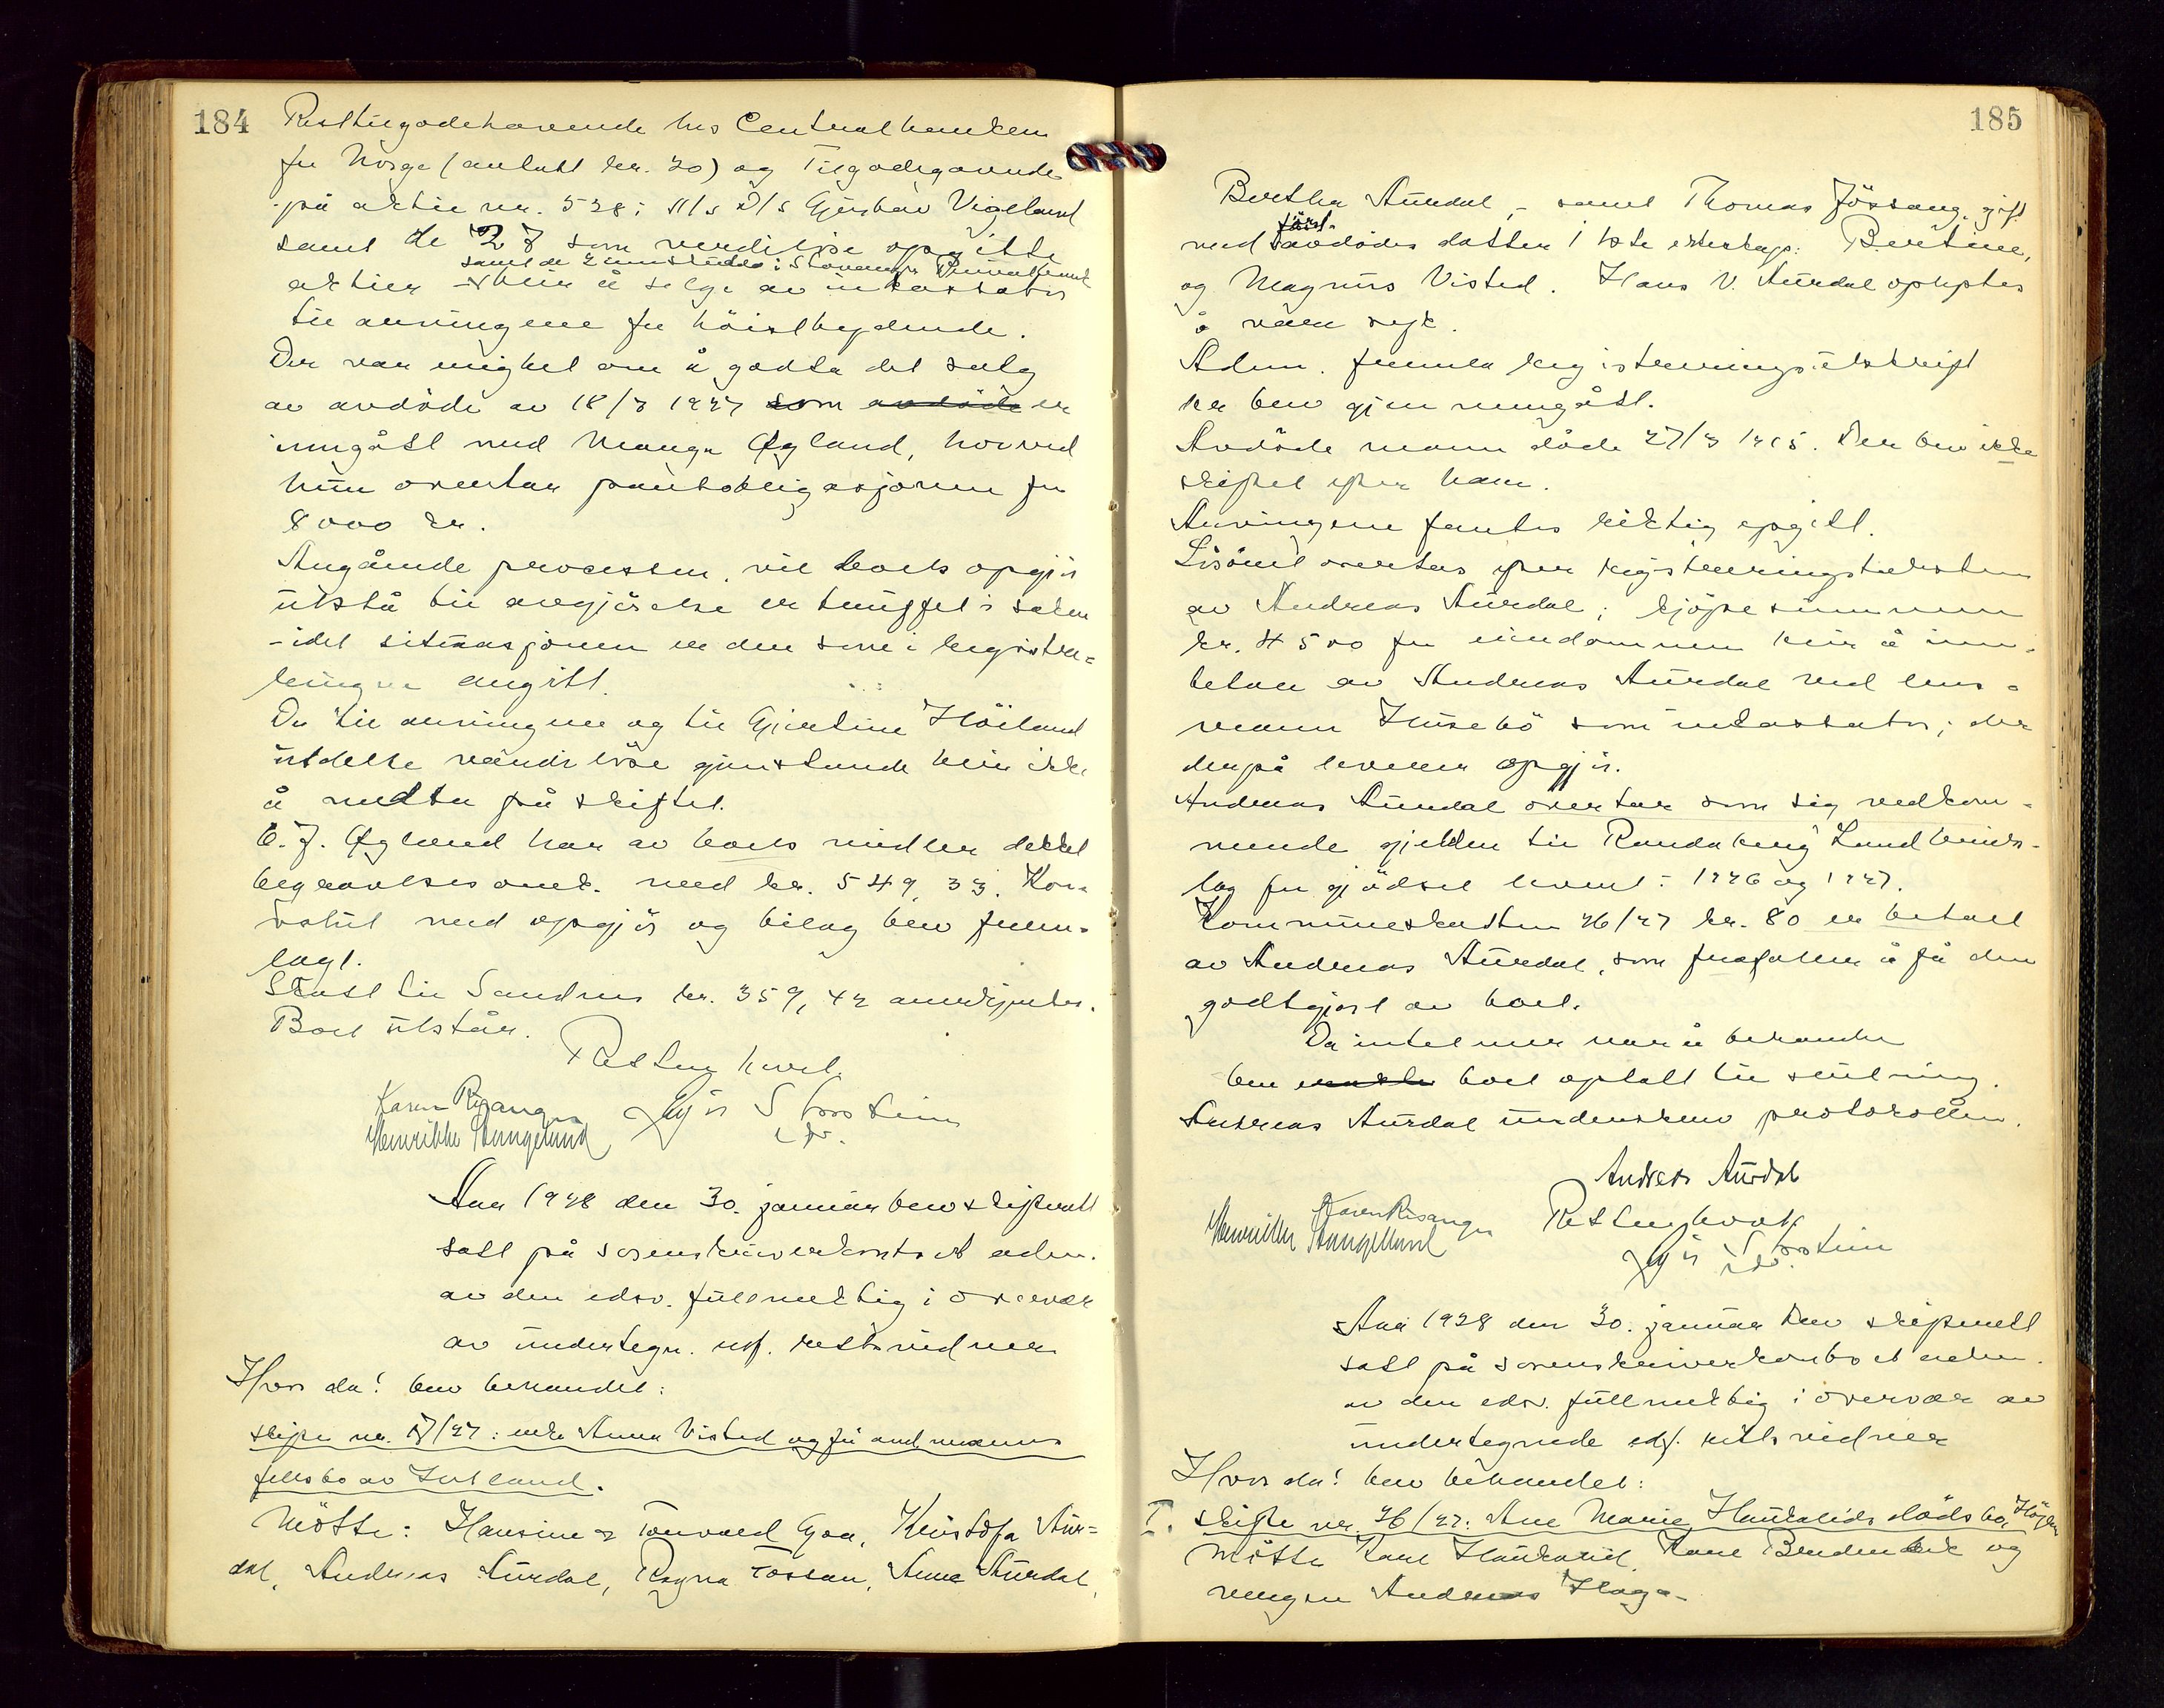 184
Resttilgodehavende hos Centralbanken
for Norge (antatt kr. 20) og Tilgodehavende
på aktie nr. 528 i A/s D/s Gjerstav Vigeland
samt de 28 som verdiløse opgitte
samt de 2 innskudd i Stavanger Privatbank
aktier blir å selge av inkassator
til arvingene for høistbydende.
Der var enighet om å godta det salg
av avdøde av 18/3 1927 som avdøde er
inngått med Manga Øgland, hvorved
hun overtar pantobligasjonen for
8000 kr.
Angående processen, vil boets opgjør
utstå til avgjørelse er truffet i saken
- idet situasjonen er den som i registre-
ringen angitt.
De til arvingene og til Gjertine Höiland
utdelte verdiløse gjenstande blir ikke
å medta på skiftet.
C. F. Øgland har av boets midler dekket
begravelsesomk. med kr. 549,33. Kon-
volut med opgjør og bilag blev frem-
lagt.
Skatt til Sandnes kr. 359,42 anerkjentes.
Boet utstår.
Retten hevet.
Karen Risanger Jør Storstein
Henrikke Stangeland
Aar 1928 den 30. januar blev skifterett
satt på sorenskriverkontoret adm.
av den edsv. fullmektig i overvær
av undertegn. edf. rettsvidner
Hvor da! blev behandlet:
skifte nr. 17/27: enke Anna Visted og før avd. manns
fellesbo av Jutland.
Møtte: Hansine og Torvald Goa, Kristofa Aur-
dal, Andreas Aurdal, Ragna Tossan, Anne Aurdal,
185
Bertha Aurdal, - samt Thomas Jössang, gift
først-
med avdødes datter i 1ste ekteskap: Bertine,
og Magnus Visted. Hans V. Aurdal oplystes
å være syk.
Adm. fremla registreringsutskrift
der blev gjennemgått.
Avdøde mann døde 27/3 1915. Der blev ikke
skiftet efter ham.
Arvingene fantes riktig opgitt.
Løsøret overtas efter registreringstaksten
av Andreas Aurdal; kjøpesummen
kr. 4500 for eiendommen blir å inn-
betale av Andreas Aurdal ved lens-
mann Husebö som inkassator; der
derpå leverer opgjør.
Andreas Aurdal overtar som sig vedkom-
mende gjelden til Randaberg Landbruks-
lag for gjödsel levert i 1926 og 1927.
Kommuneskatten 26/27 kr. 80 er betalt
av Andreas Aurdal, som frafaller å få den
godtgjort av boet.
Da intet mer var å behandle
blev boet optatt til slutning.
Andreas Aurdal underskrev protokollen.
Andreas Aurdal
Karen Risanger Retten hevet
Henrikke Stangeland Jør Storstein
Aar 1928 den 30. januar blev skifterett
satt på sorenskriverkontoret adm.
av den edsv. fullmektig i overvær av
undertegnede edf. rettsvidner
Hvor da! blev behandlet:
I. skifte nr. 26/27: Ane Marie Haukalids dödsbo,
Møtte Karl Haukalid, Karl og
vergen Andreas Haga-